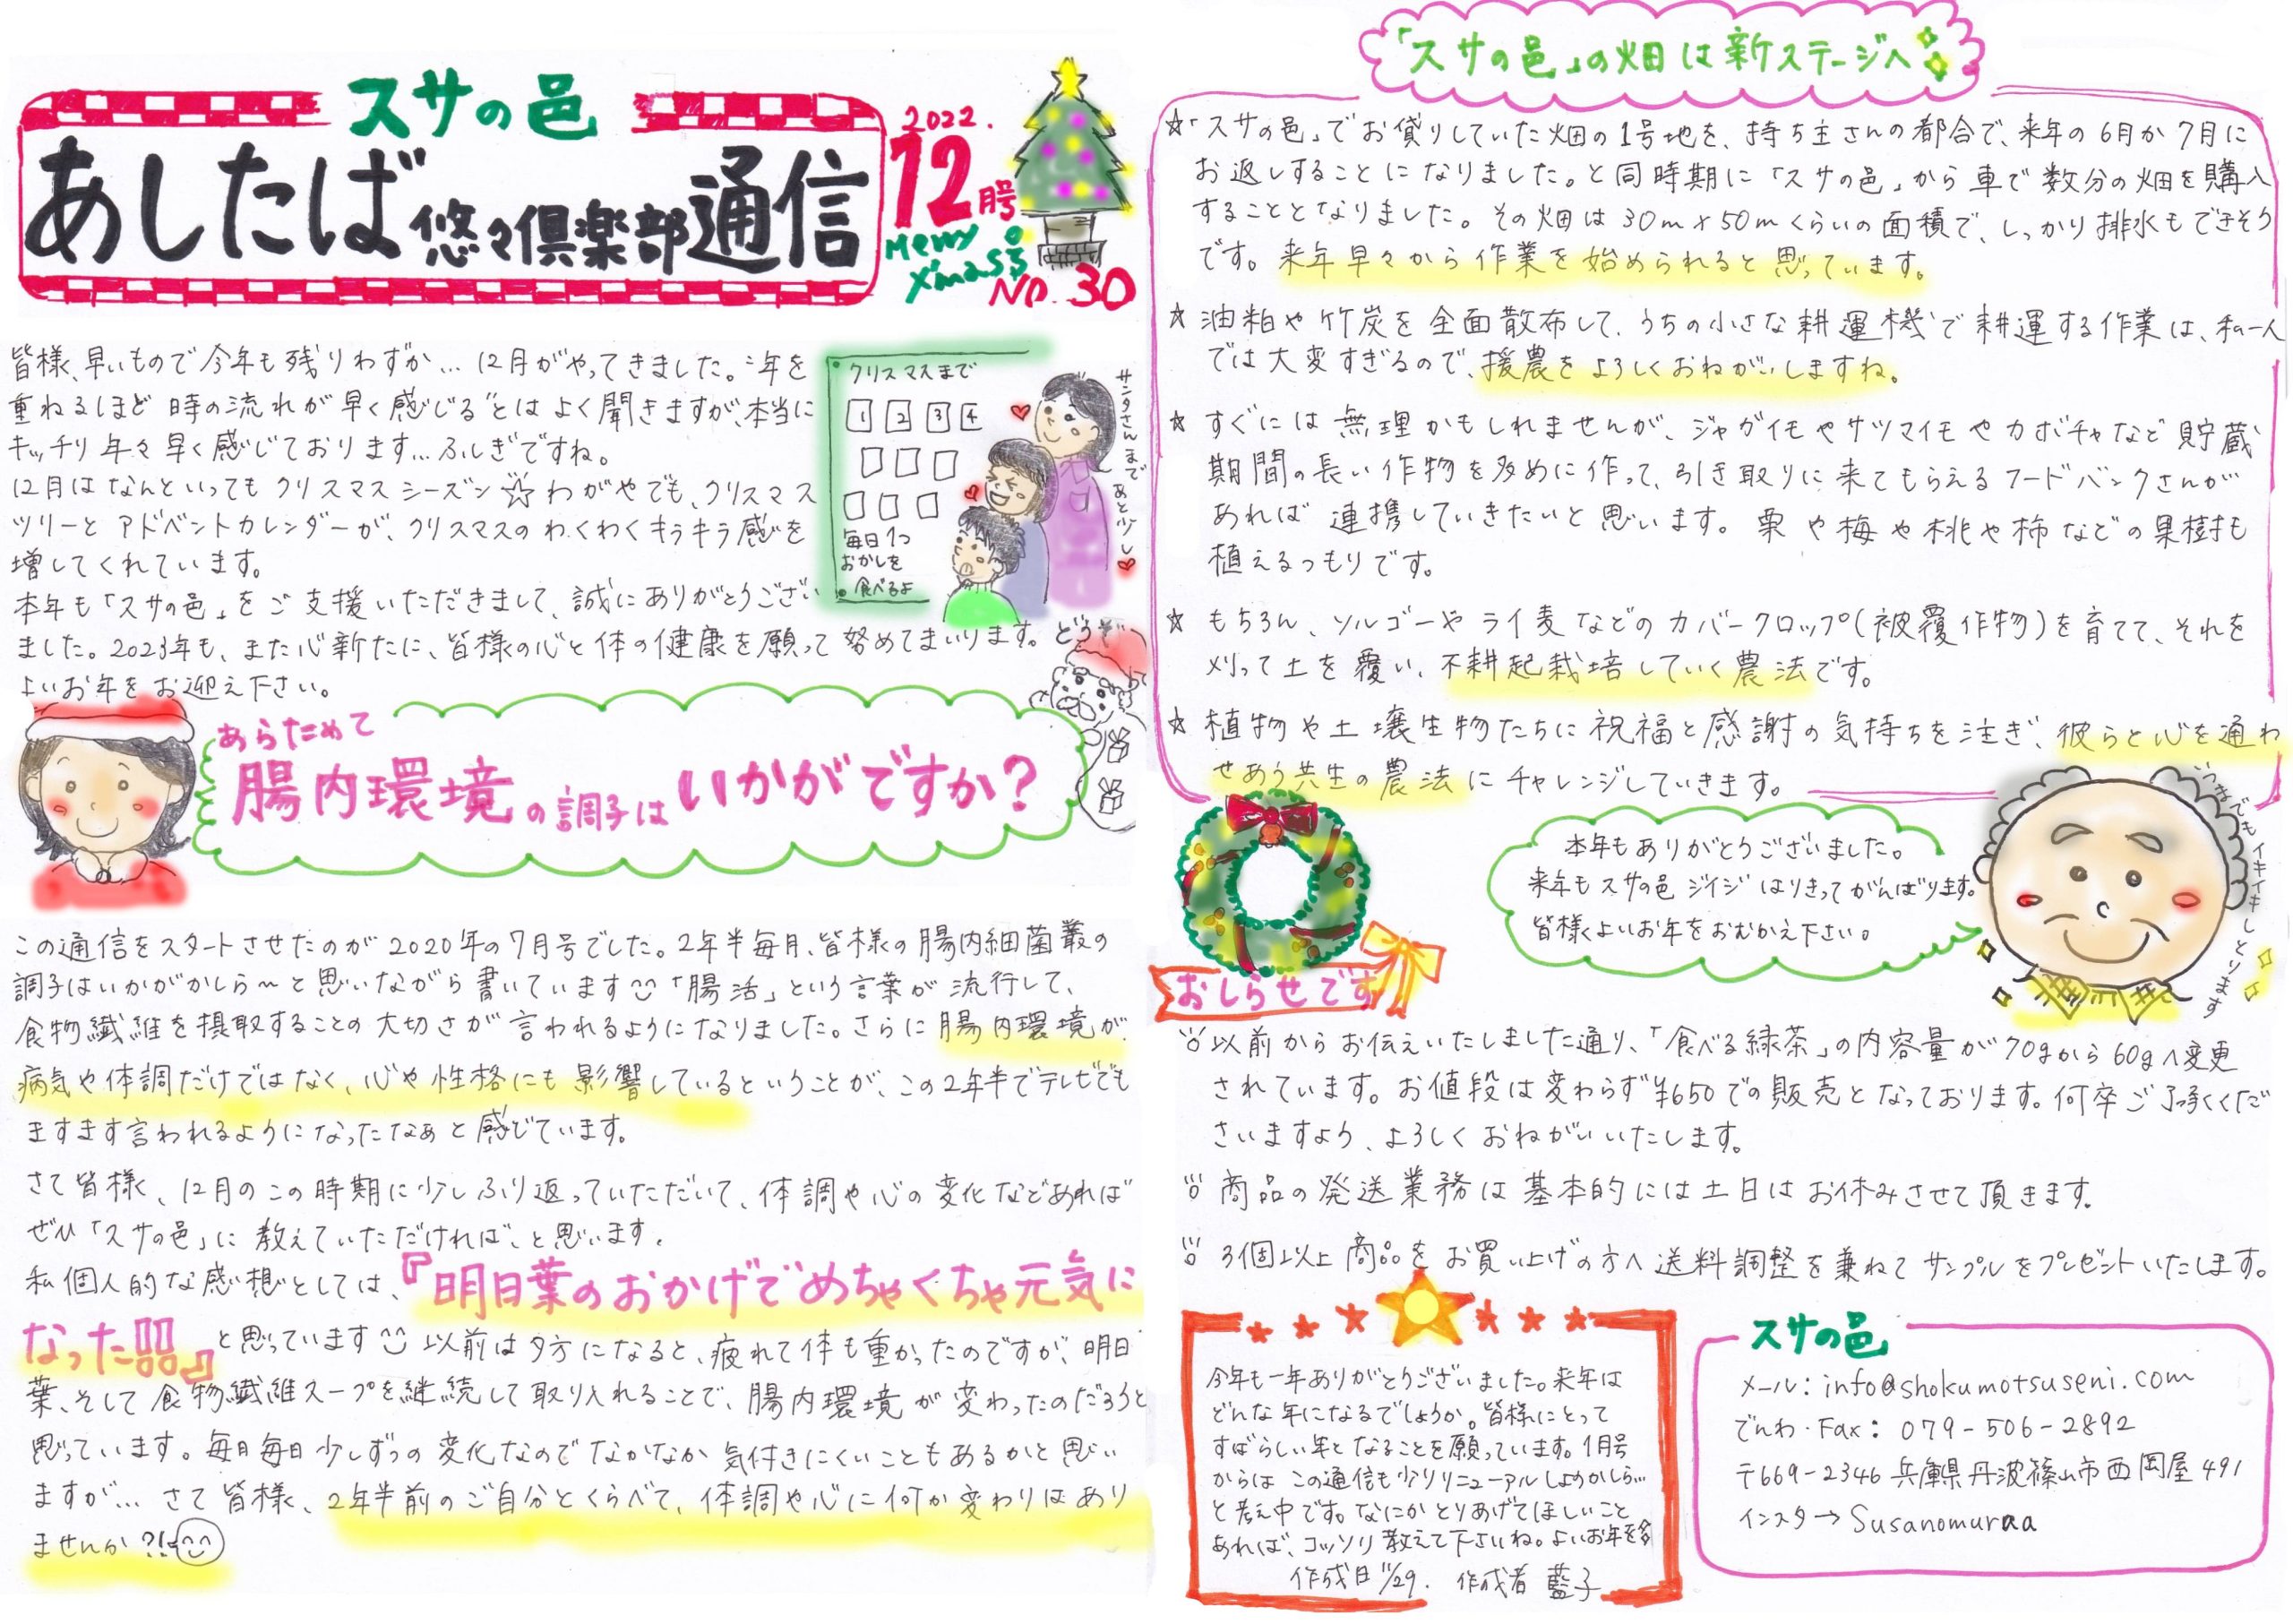 スサの邑
あしたば悠々倶楽部通信
2022.
12月号
Merry
X'mas
No.30
皆様、早いもので今年も残りわずか…12月がやってきました。"年を
重ねるほど時の流れが早く感じる"とはよく聞きますが、本当に
キッチリ年々早く感じております…ふしぎですね。
12月はなんといってもクリスマスシーズン☆わがやでも、クリスマス
ツリーとアドベントカレンダーが、クリスマスのわくわくキラキラ感を
増してくれています。
本年も「スサの邑」をご支援いただきまして、誠にありがとうござい
ました。2023年も、また心新たに、皆様の心と体の健康を願って努めてまいります。
よいお年をお迎え下さい。
クリスマスまで
1 2 3 4
毎日1つ
おかしを
食べるよ
サンタさんまであと少し
どうぞ
あらためて
腸内環境の調子はいかがですか？
この通信をスタートさせたのが2020年の7月号でした。2年半毎月、皆様の腸内細菌叢の
調子はいかがかしら〜と思いながら書いています「腸活」という言葉が流行して、
食物繊維を摂取することの大切さが言われるようになりました。さらに腸内環境が
病気や体調だけではなく、心や性格にも影響しているということが、この2年半でテレビでも
ますます言われるようになったなぁと感じています。
さて皆様、12月のこの時期に少しふり返っていただいて、体調や心の変化などあれば
ぜひ「スサの邑」に教えていただければ、と思います。
私個人的な感想としては、『明日葉のおかげでめちゃくちゃ元気に
なった!!!』と思っています 以前は夕方になると、疲れて体も重かったのですが、明日
葉、そして食物繊維スープを継続して取り入れることで、腸内環境が変わったのだろうと
思っています。毎日毎日少しずつの変化なのでなかなか気付きにくいこともあるかと思い
ますが…さて皆様、2年半前のご自分とくらべて、体調や心に何か変わりはあり
ませんか?!
「スサの邑」の畑は新ステージへ
☆「スサの邑」でお貸りしていた畑の1号地を、持ち主さんの都合で、来年の6月か7月に
お返しすることになりました。と同時期に「スサの邑」から車で数分の畑を購入
することとなりました。その畑は30m×50mくらいの面積で、しっかり排水もできそう
です。来年早々から作業を始められると思っています。
☆油粕や竹炭を全面散布して、うちの小さな耕運機で耕運する作業は、私一人
では大変すぎるので、援農をよろしくおねがいしますね。
☆すぐには無理かもしれませんが、ジャガイモやサツマイモやカボチャなど貯蔵
期間の長い作物を多めに作って、引き取りに来てもらえるフードバンクさんが
あれば連携していきたいと思います。栗や梅や桃や柿などの果樹も
植えるつもりです。
☆もちろん、ソルゴーやライ麦などのカバークロップ(被覆作物)を育てて、それを
刈って土を覆い、不耕起栽培していく農法です。
☆植物や土壌生物たちに祝福と感謝の気持ちを注ぎ、彼らと心を通わ
せあう共生の農法にチャレンジしていきます。
本年もありがとうございました。
来年もスサの邑ジイジはりきってがんばります。
皆様よいお年をおむかえ下さい。
いつまでもイキイキしとります
おしらせです
以前からお伝えいたしました通り、「食べる緑茶」の内容量が70gから60gへ変更
されています。お値段は変わらず¥650での販売となっております。何卒ご了承くだ
さいますよう、よろしくおねがいいたします。
商品の発送業務は基本的には土日はお休みさせて頂きます。
3個以上商品をお買い上げの方へ送料調整を兼ねてサンプルをプレゼントいたします。
今年も一年ありがとうございました。来年は
どんな年になるでしょうか。皆様にとって
すばらしい年となることを願っています。1月号
からはこの通信も少しリニューアルしようかしら…
と考え中です。なにかとりあげてほしいこと
あれば、コッソリ教えて下さいね。よいお年を
作成日11/29. 作成者 藍子
スサの邑
メール：info@shokumotsuseni.com
でんわ・Fax：079-506-2892
〒669-2346 兵庫県丹波篠山市西岡屋491
インスタ→ Susanomuraa